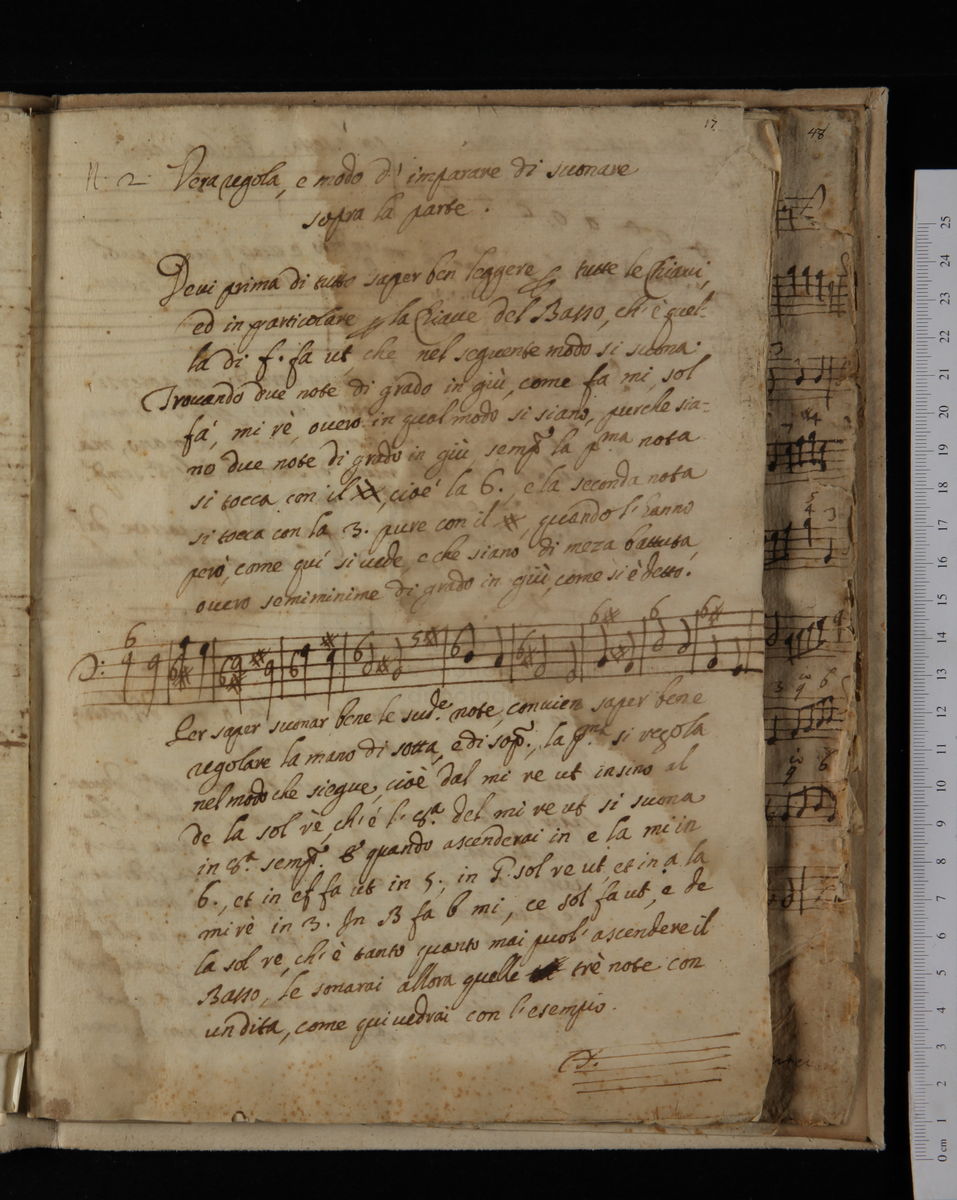 17
48
N. 2. Vera regola, e modo d'imparare di suonare
sopra la parte.
Devi prima di tutto saper ben leggere tutte le Chiavi,
ed in particolare la Chiave del Basso, ch'è quel-
la di f. fa ut, che nel seguente modo si suona.
Trovando due note di grado in giù, come fa mi, sol
fà, mi rè, overo in qual modo si siano, purche sia-
no due note di grado in giù semp.e la p.ma nota
si tocca con il #, cioè la 6., e la seconda nota
si tocca con la 3. pure con il #, quando l'hanno
però, come quì si vede, e che siano di meza battuta,
overo semiminime di grado in giù, come si è detto.
6 6# # 6# # 6 # 6 # 5# 6 6# 6# # 6 6#
Per saper suonar bene le sud.e note, convien saper bene
regolare la mano di sotto, e di sop.a, la p.ma si regola
nel modo che siegue, cioè dal mi re ut insino al
de la sol rè, ch'è l'8.a del mi re ut si suona
in 8.a semp.e E quando ascenderai in e la mi in
6., et in ef fa ut in 5., in G. sol re ut, et in a la
mi rè in 3. In B fa b mi, ce sol fa ut, e de
la sol re, ch'è tanto quanto mai puol' ascendere il
Basso, le sonarai allora quelle trè note con
un dita, come qui vedrai con l'esempio.